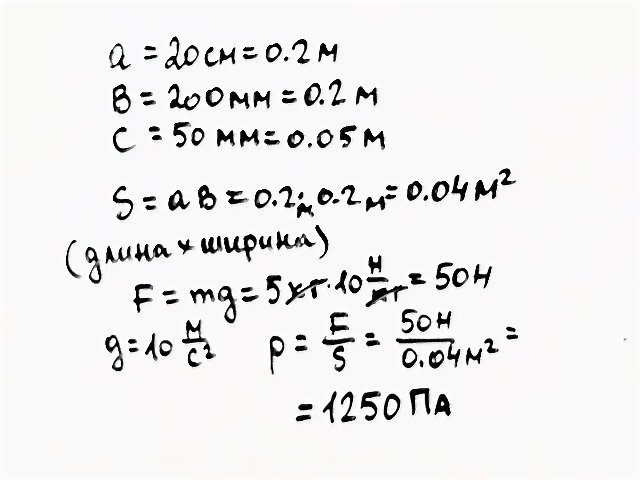 a = 20см = 0.2 м
B = 200 мм = 0.2 м
C = 50 мм = 0.05 м
S = a B = 0.2 м · 0.2 м = 0.04 м²
(длина × ширина)
F = mg = 5 кг · 10 Н/кг = 50 Н
g = 10 м/с² p = F/S = 50 Н/0.04 м² =
= 1250 ПА